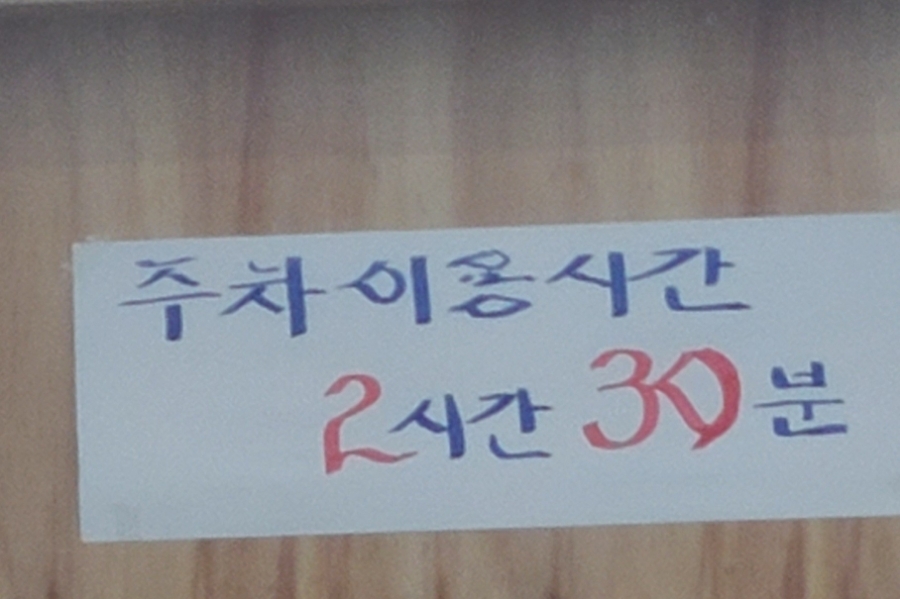 주차이용시간
2시간 30분